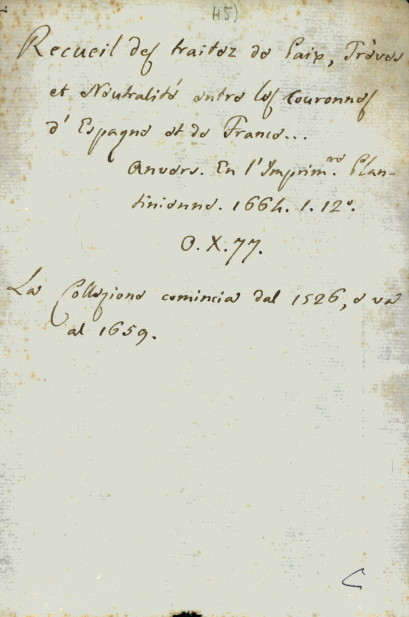 45)
Recueil des traitez de Paix, Trèves
et Neutralité entre les Couronnes
d'Espagne et de France...
Anvers. En l'Imprim.re Plan-
tinienne. 1664. 1. 12°.
O.X.77.
La Collezione comincia dal 1526, e va
al 1659.